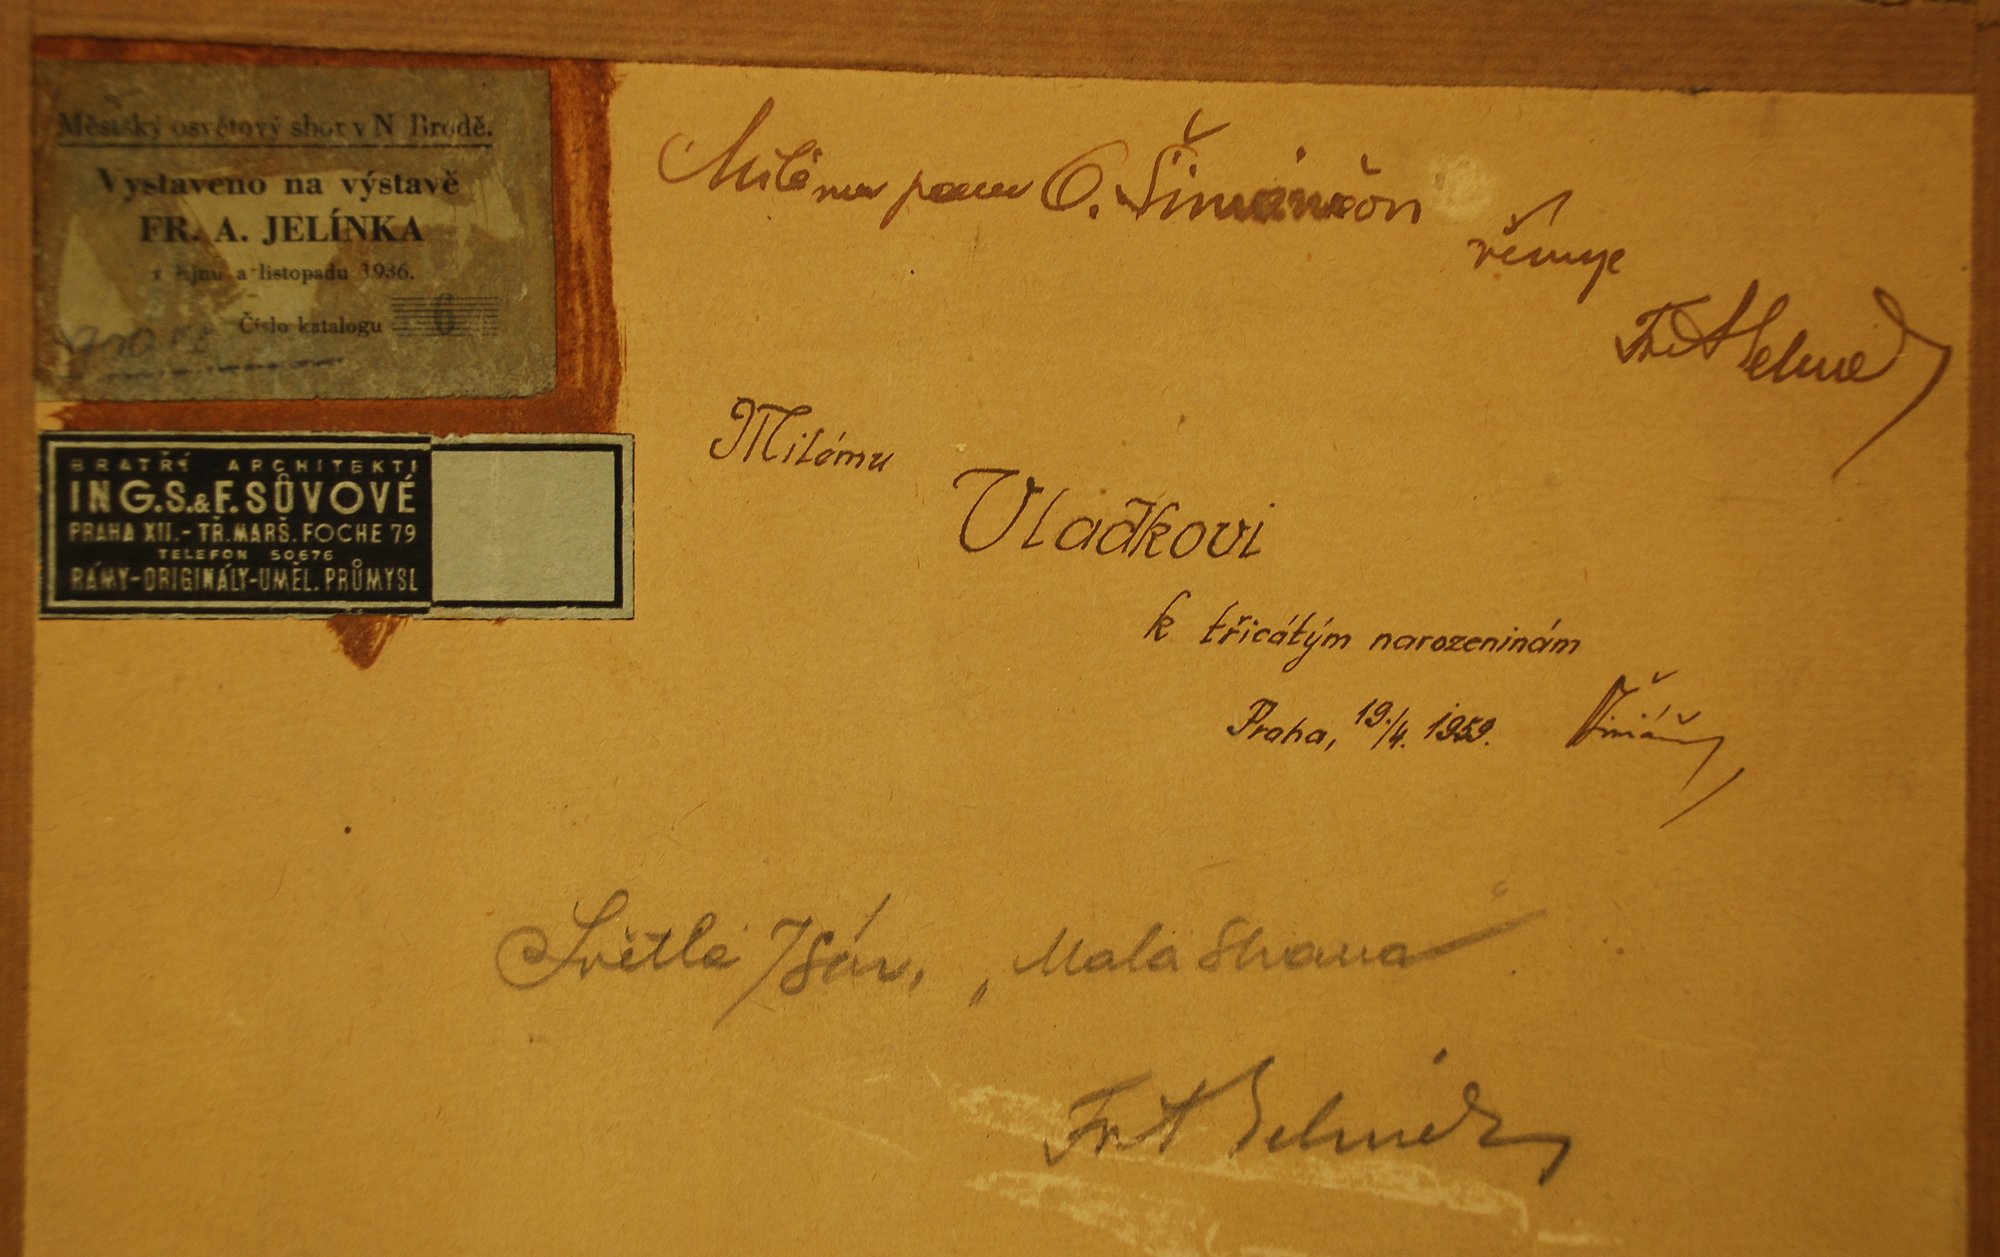 Městský osvětový sbor v N. Brodě.
Vystaveno na výstavě
FR. A. JELÍNKA
v říjnu a listopadu 1936.
Číslo katalogu 6
BRATŘI ARCHITEKTI
ING.S.&F.SŮVOVÉ
PRAHA XII.-TŘ.MARŠ.FOCHE 79
TELEFON 50676
RÁMY-ORIGINÁLY-UMĚL.PRŮMYSL
Milému panu O.
věnuje
Fr A Jelínek
Milému
Vlaďkovi
k třicátým narozeninám
Praha, 19./4. 1959.
Světlá n/Sáz., „Malá Strana"
Fr A Jelínek